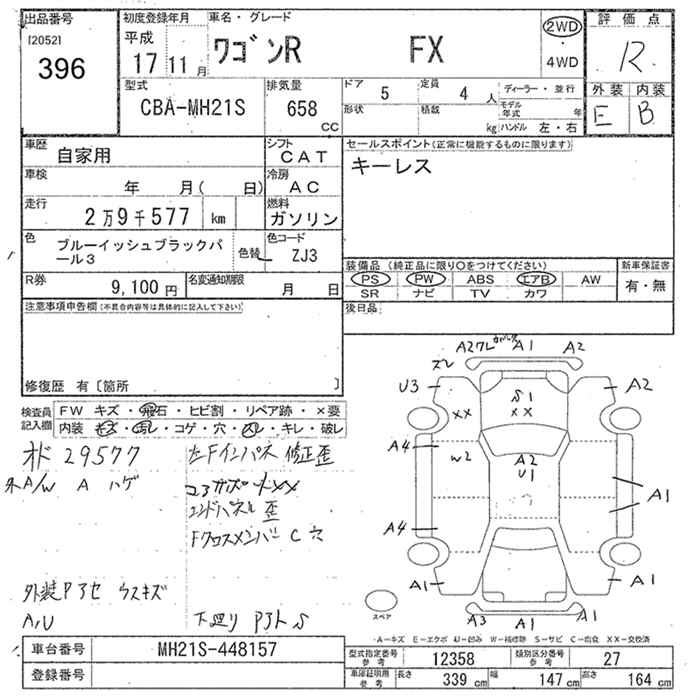 出品番号
[2052]
396
初度登録年月
平成
17 11 月
車名・グレード
ワゴンR FX
2WD
・
4WD
評価点
R
外装 内装
E B
型式
CBA-MH21S
排気量
658
cc
ドア
5
定員
4 人
形状
積載
kg
ディーラー・並行
モデル年式 年
ハンドル 左・右
車歴
自家用
シフト
CAT
車検
年 月( 日)
冷房
AC
走行
2万9千577 km
燃料
ガソリン
色
ブルーイッシュブラックパール3
色替
色コード
ZJ3
R券
9,100 円
名変通知期限
月 日
セールスポイント(正常に機能するものに限ります)
キーレス
装備品(純正品に限り○をつけてください)
PS PW ABS エアB AW
SR ナビ TV カワ
新車保証書
有・無
後日品
注意事項申告欄(不具合内容等は具体的に記入して下さい)
修復歴 有〔箇所 〕
検査員記入欄
FW キズ・飛石・ヒビ割・リペア跡・×要
内装・キズ・汚れ・コゲ・穴・凹・キレ・破レ
オド 29577
外A/W A ハゲ
左Fインパネ 修正歪
コアサポートXX
エンドパネル 歪
Fクロスメンバー C 穴
外装Pアセ ウスキズ
A,U
下廻り Pアト S
A2ワレ A1 A2
ズレ
U3
A2
S1
XX
XX
A4
W2
A2
U1
A1
A4
A1
A1
A3
A1
A1
スペア
A-キズ E-エクボ U-凹み W-補修跡 S-サビ C-腐食 XX-交換済
車台番号
MH21S-448157
登録番号
型式指定番号
参考
12358
類別区分番号
参考
27
車庫証明用
参考
長さ
339 cm
幅
147 cm
高さ
164 cm